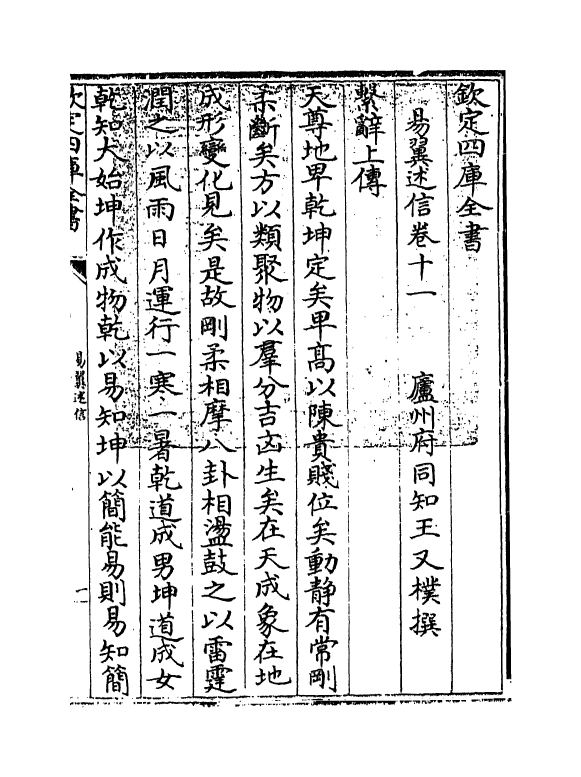 欽定四庫全書
易翼述信卷十一　廬州府同知王又樸撰
繫辭上傳
天尊地卑乾坤定矣卑髙以陳貴賤位矣動静有常剛
柔斷矣方以類聚物以羣分吉凶生矣在天成象在地
成形變化見矣是故剛柔相摩八卦相盪鼓之以雷霆
潤之以風雨日月運行一寒一暑乾道成男坤道成女
乾知大始坤作成物乾以易知坤以簡能易則易知簡
欽定四庫全書
易翼述信
一